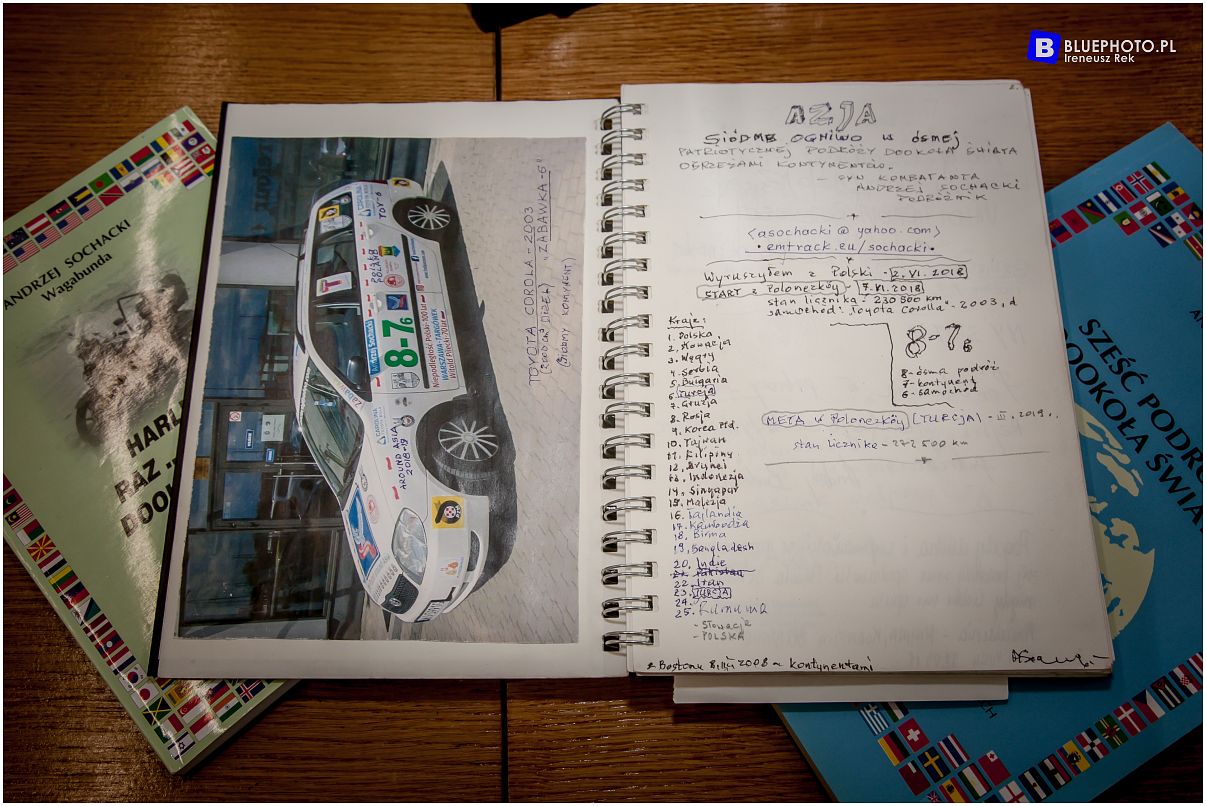 BLUEPHOTO.PL
Ireneusz Rek
ANDRZEJ SOCHACKI
Wagabunda
HARL
RAZ
DOO
TOYOTA COROLA - 2003
"ZABAWKA-6"
AROUND ASIA
2018-19
8-76
Niepodległość Polski-100 lat
WARSZAWA-TARGÓWEK
Witold Pilecki-70 lat
POLAND
TOY-6
2.
AZJA
SIÓDME OGNIWO w ósmej
PATRIOTYCZNEJ PODRÓŻY DOOKOŁA ŚWIATA
OBRZEŻAMI KONTYNENTÓW.
- SYN KOMBATANTA
ANDRZEJ SOCHACKI
PODRÓŻNIK
<asochacki@yahoo.com>
• emtrack.eu/sochacki •
Wyruszyłem z Polski - 2.VI.2018
START z Polonezköy - 17.VI.2018
stan licznika - 230 800 km
samochód: "Toyota Corolla" - 2003, d
8-76
8- ósma podróż
7- kontynent
6- samochód
META w Polonezköy [TURCJA] - III. 2019r.
stan licznika - 272 500 km
Kraje:
1. Polska
2. Słowacja
3. Węgry
4. Serbia
5. Bułgaria
6. Turcja
7. Gruzja
8. Rosja
9. Korea Płd.
10. Tajwan
11. Filipiny
12. Brunei
13. Indonezja
14. Singapur
15. Malezja
16. Tajlandia
17. Kambodża
18. Birma
19. Bangladesh
20. Indie
21. Pakistan
22. Iran
23. TURCJA
24.
25. Rumunia
- Słowacja
- POLSKA
z Bostonu 8.III 2008 ~ kontynentami
SZEŚĆ PODRÓ
DOOKOŁA ŚWIA